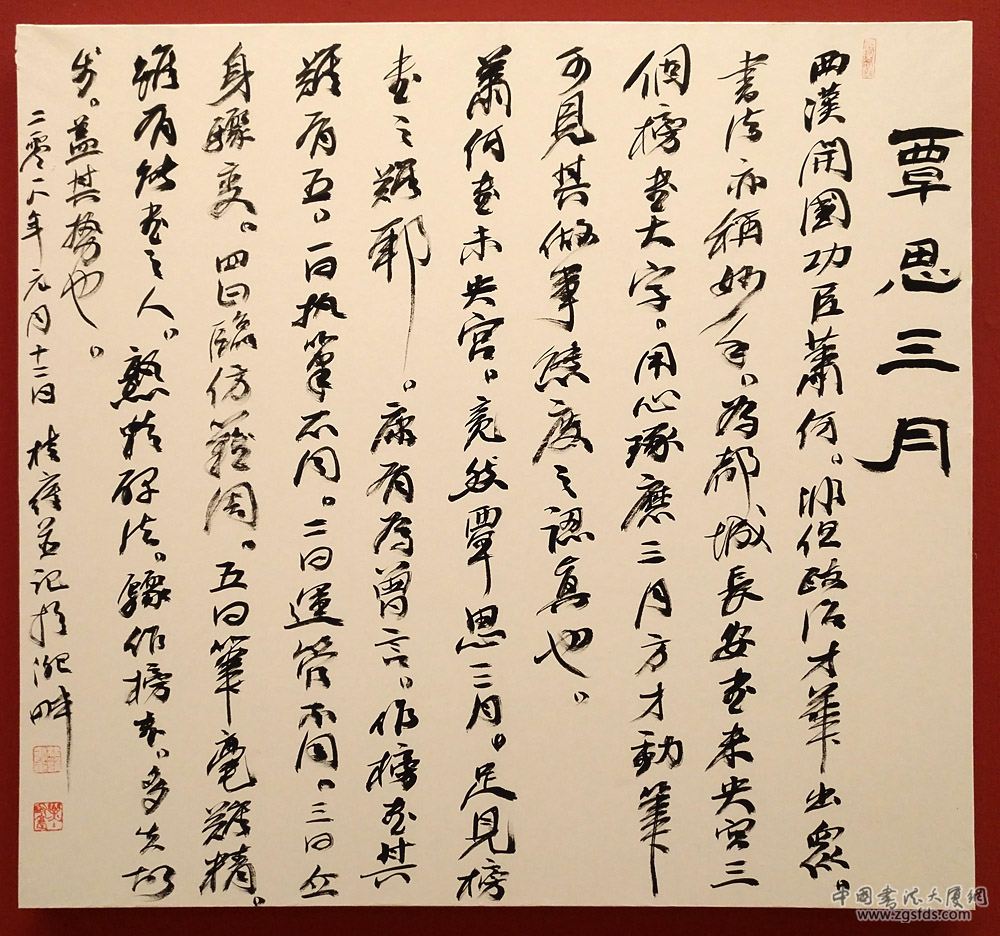 覃思三月
西漢開國功臣蕭何。非但政治才華出衆。
書法亦稱妙手。為都城長安書未央宮三
個榜書大字。用心琢磨三月方才動筆
可見其做事態度之認真也。
蕭何書未央宮。竟然覃思三月。足見榜
書之難耶。康有為曾言。作榜書其
難有五。一曰执筆不同。二曰運管不同。三曰立
身驟变。四曰臨仿難周。五曰筆毫難精。
雖有能書之人。熟精碑法。驟作榜書。多失故
步。蓋其勢也。
二零一八年元月十二日 桂雍 記於淝畔
中国书法大厦網
www.zgsfds.com